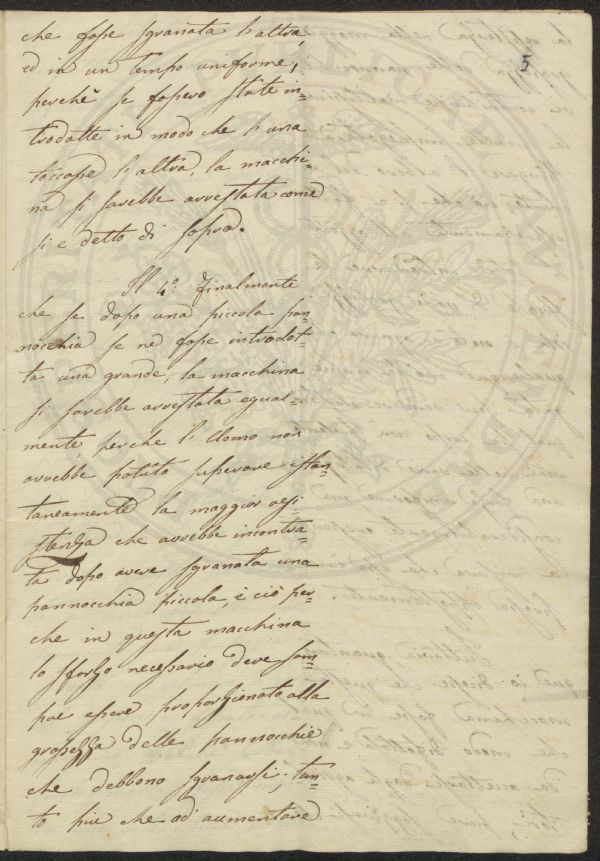 5
che fosse sgranata l'altra,
ed in un tempo uniforme,
perchè se fossero state in=
trodotte in modo che l'una
toccasse l'altra, la macchi=
na si sarebbe arrestata come
si e detto di sopra.
Il 4º: Finalmente
che se dopo una piccola pan=
nocchia se ne fosse introdot=
ta una grande, la macchina
si sarebbe arrestata egual=
mente, perche l'Uomo non
avrebbe potuto superare istan=
taneamente la maggior resi=
stenza che avrebbe incontra=
ta dopo avere sgranata una
pannocchia piccola, e ciò per=
che in questa macchina
lo sforzo necessario deve sem=
pre essere proporzionato alla
grossezza delle pannocchie
che debbono sgranarsi; tan=
to piu che ad aumentare